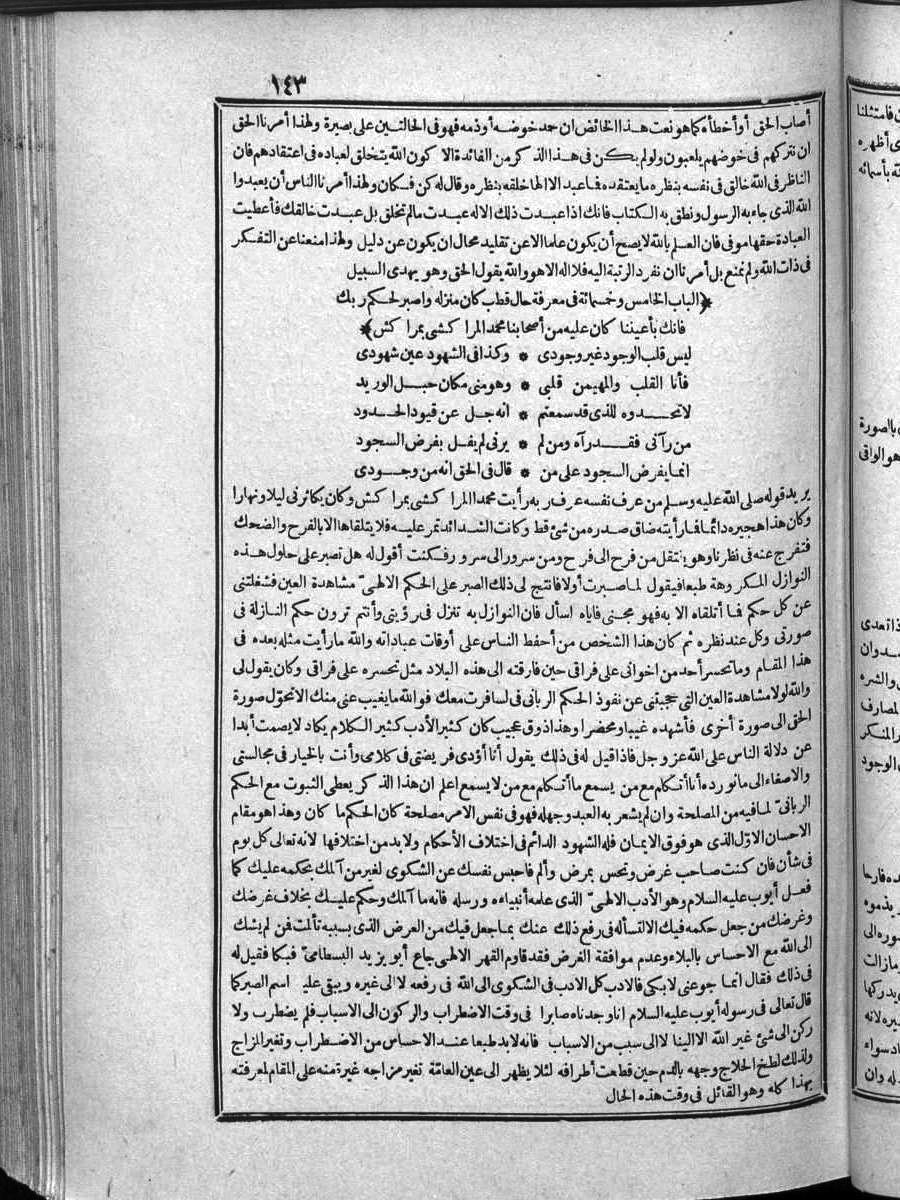 ١٤٣
أصاب الحق أو أخطأه كما هو نعت هذا الخائض ان حمد خوضه أو ذمه فهو فى الحالتين على بصيرة ولهذا أمرنا الحق
ان نتركهم فى خوضهم يلعبون ولو لم يكن فى هذا الذكر من الفائدة الا كون الله يتخلق لعباده فى اعتقادهم فان
الناظر فى الله خالق فى نفسه بنظره ما يعتقده فما عبد الا الها خلقه بنظره وقال له كن فكان ولهذا أمرنا الناس أن يعبدوا
الله الذى جاء به الرسول ونطق به الكتاب فانك اذا عبدت ذلك الاله عبدت مالم تخلق بل عبدت خالقك فأعطيت
العبادة حقها موفى فان العلم بالله لا يصح أن يكون علما الا عن تقليد محال ان يكون عن دليل ولهذا منعنا عن التفكر
فى ذات الله ولم نمنع بل أمرنا ان نفرد الرتبة اليه فلا اله الا هو والله يقول الحق وهو يهدى السبيل
﴿الباب الخامس وخمسمائة فى معرفة حال قطب كان منزله واصبر لحكم ربك
فانك بأعيننا كان عليه من أصحابنا محمد المراكشى بمراكش﴾
ليس قلب الوجود غير وجودى * وكذا فى الشهود عين شهودى
فأنا القلب والمهيمن قلبى * وهو منى مكان حبل الوريد
لا تحدوه للذى قد سمعتم * انه جل عن قيود الحدود
من رآنى فقد رآه ومن لم * يرنى لم يفل بفرض السجود
انما يفرض السجود على من * قال فى الحق انه من وجودى
يريد قوله صلى الله عليه وسلم من عرف نفسه عرف ربه رأيت محمدا المراكشى بمراكش وكان يكاثرنى ليلا ونهارا
وكان هذا هجيره دائما فما رأيته ضاق صدره من شئ قط وكانت الشدائد تمر عليه فلا يتلقاها الا بالفرح والضحك
فتفرج عنه فى نظرنا وهو ينتقل من فرح الى فرح ومن سرور الى سرور فكنت أقول له هل تصبر على حلول هذه
النوازل المكروهة طبعا فيقول لما صبرت أولا فانتج لى ذلك الصبر على الحكم الالهىّ مشاهدة العين فشغلتنى
عن كل حكم فما أتلقاه الا به فهو مجنى فاياه اسأل فان النوازل به تنزل فى رؤيتى وأنتم ترون حكم النازلة فى
صورتى وكل عند نظره ثم كان هذا الشخص من أحفظ الناس على أوقات عباداته والله ما رأيت مثله بعده فى
هذا المقام وما تحسر أحد من اخوانى على فراقى حين فارقته الى هذه البلاد مثل تحسره على فراقى وكان يقول لى
والله لولا مشاهدة العين التى حجبتنى عن نفوذ الحكم الربانى فى لسافرت معك فوالله ما يغيب عنى منك الا تحوّل صورة
الحق الى صورة أخرى فأشهده غيبا ومحضرا وهذا ذوق عجيب كان كثير الأدب كثير الكلام يكاد لا يصمت أبدا
عن دلالة الناس على الله عز وجل فاذا قيل له فى ذلك يقول أنا أؤدى فريضتى فى كلامى وأنت بالخيار فى مجالستى
والاصغاء الى ما نورده أنا أتكلم مع من يسمع ما أتكلم مع من لا يسمع اعلم ان هذا الذكر يعطى الثبوت مع الحكم
الربانىّ لما فيه من المصلحة وان لم يشعر به العبد وجهله فهو فى نفس الامر مصلحة كان الحكم ما كان وهذا هو مقام
الاحسان الاوّل الذى هو فوق الايمان فله الشهود الدائم فى اختلاف الأحكام ولا بد من اختلافها لانه تعالى كل يوم
فى شأن فان كنت صاحب غرض وتحس بمرض وألم فاحبس نفسك عن الشكوى لغير من آلمك بحكمه عليك كما
فعل أيوب عليه السلام وهو الأدب الالهىّ الذى علمه أنبياءه ورسله فانه ما آلمك وحكم عليك بخلاف غرضك
وغرضك من جعل حكمه فيك الا لتسأله فى رفع ذلك عنك بما جعل فيك من العرض الذى بسببه تألمت فمن لم يشك
الى الله مع الاحساس بالبلاء وعدم موافقة الغرض فقد قاوم القهر الالهىّ جاع أبو يزيد البسطامىّ فبكا فقيل له
فى ذلك فقال انما جوعنى لابكى فالادب كل الادب فى الشكوى الى الله فى رفعه لا الى غيره ويبقى عليه اسم الصبر كما
قال تعالى فى رسوله أيوب عليه السلام انا وجدناه صابرا فى وقت الاضطراب والركون الى الاسباب فلم يضطرب ولا
ركن الى شئ غير الله الا الينا لا الى سبب من الاسباب فانه لا بد طبعا عند الاحساس من الاضطراب وتغير المزاج
ولذلك لطخ الحلاج وجهه بالدم حين قطعت أطرافه لئلا يظهر الى عين العامّة تغير مزاجه غيرة منه على المقام لمعرفته
بهذا كله وهو القائل فى وقت هذه الحال